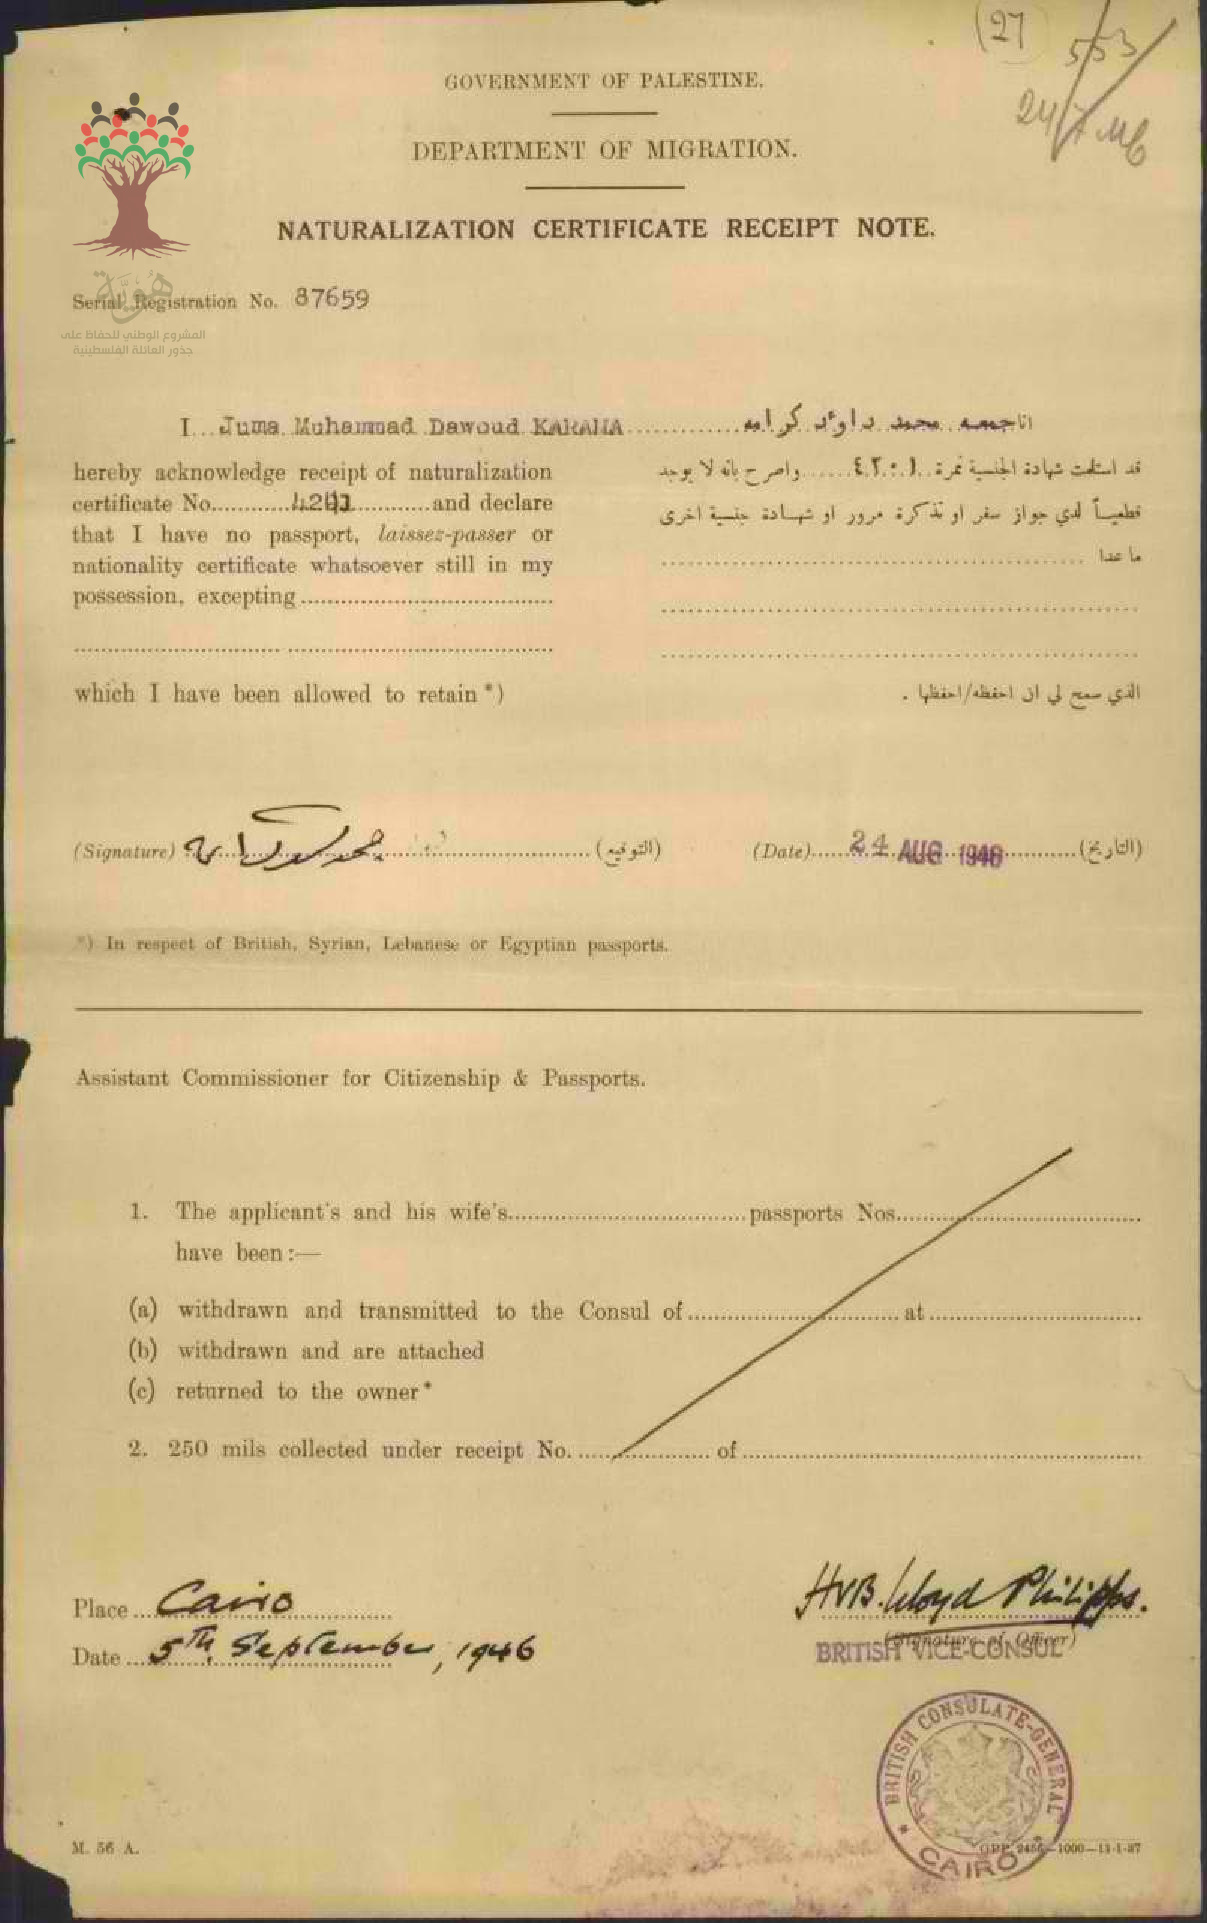 (27)
553
24/7 46
GOVERNMENT OF PALESTINE.
DEPARTMENT OF MIGRATION.
NATURALIZATION CERTIFICATE RECEIPT NOTE.
هُويَّة
المشروع الوطني للحفاظ على
جذور العائلة الفلسطينية
Serial Registration No. 87659
I...Juma Muhammad Dawoud KARAMA
انا جمعه محمد داوُد كرامه
hereby acknowledge receipt of naturalization
certificate No. and declare
that I have no passport, laissez-passer or
nationality certificate whatsoever still in my
possession, excepting
which I have been allowed to retain *)
قد استلمت شهادة الجنسية نمرة ٤٢٠١ واصرح بانه لا يوجد
قطعياً لدي جواز سفر او تذكرة مرور او شهادة جنسية اخرى
ما عدا
الذي سمح لي ان احفظه/احفظها .
(Signature) (التوقيع)
(Date) 24 AUG 1946 (التاريخ)
*) In respect of British, Syrian, Lebanese or Egyptian passports.
Assistant Commissioner for Citizenship & Passports.
1. The applicant's and his wife's passports Nos.
have been :—
(a) withdrawn and transmitted to the Consul of at
(b) withdrawn and are attached
(c) returned to the owner*
2. 250 mils collected under receipt No. of
Place Cairo
Date 5th September, 1946
HVB. Lloyd Philipps.
(Signature of Officer)
BRITISH VICE-CONSUL
BRITISH CONSULATE-GENERAL
* CAIRO *
M. 56 A.
GPP. 2456—1000—13-1-37